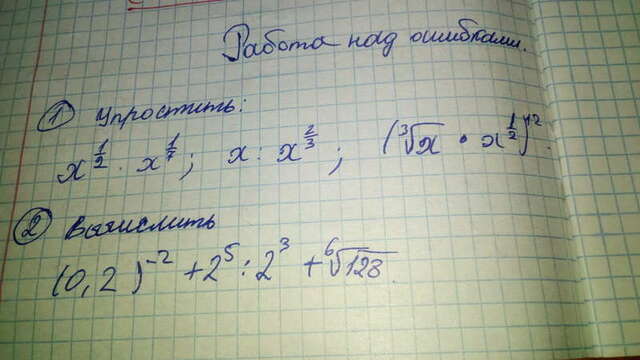 Работа над ошибками.
① Упростить:
x^{\frac{1}{2}} · x^{\frac{1}{7}}; x : x^{\frac{2}{3}}; (\sqrt[3]{x} · x^{\frac{1}{2}})^{12}.
② Вычислить
(0,2)^{-2} + 2^5 : 2^3 + \sqrt[6]{128}.